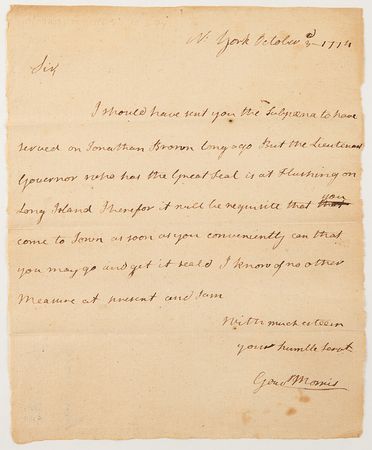 N. York October 3d 1774
Sir,
I should have sent you the Subpœna to have
served on Jonathan Brown long ago But the Lieutenant
Governor who has the Great Seal is at Flushing on
Long Island Therefor it will be requisite that you
come to Town as soon as you conveniently can that
you may go and get it seald I know of no other
Measure at present and I am
With much esteem
your humble Servt.
Gouvr Morris